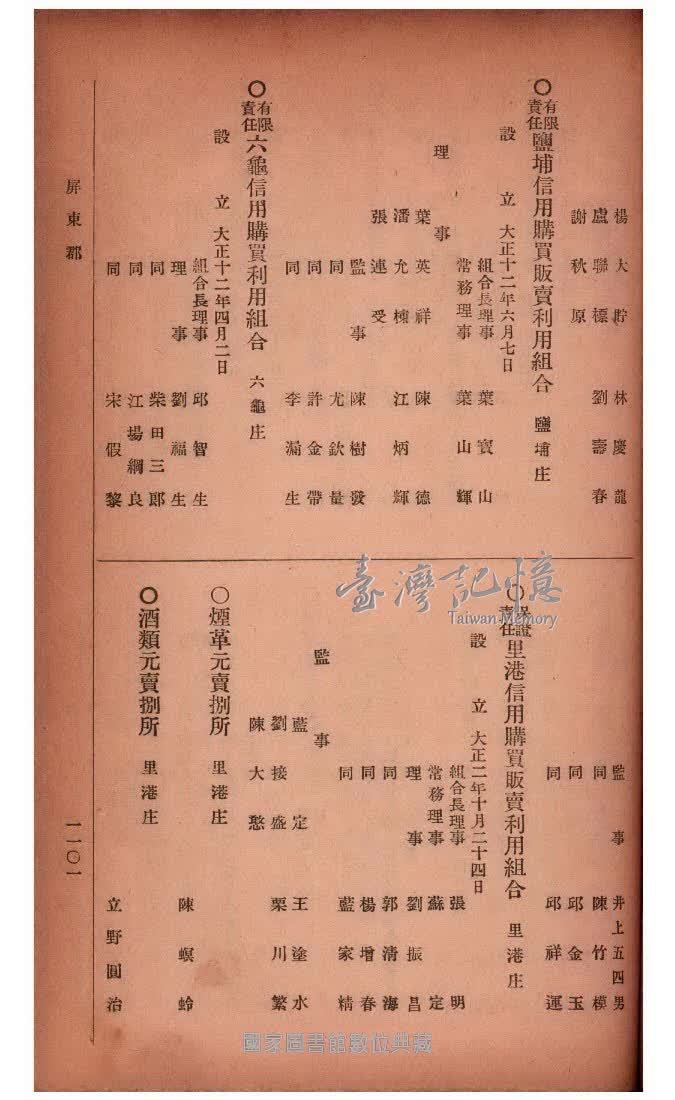 楊大貯 林慶龍
盧聯標 劉壽春
謝秋原
○有限責任鹽埔信用購買販賣利用組合 鹽埔庄
設立 大正十二年六月七日
組合長理事 葉寶山
常務理事 葉山輝
理事
葉英祥 陳德
潘允檖 江炳輝
張連受
監事 陳樹發
同 尤欽量
同 許金帶
同 李漏生
○有限責任六龜信用購買利用組合 六龜庄
設立 大正十二年四月二日
組合長理事 邱智生
理事 劉福生
同 柴田三郎
同 江場綱良
同 宋假黎
監事 井上五四男
同 陳竹模
同 邱金玉
同 邱祥運
○保證責任里港信用購買販賣利用組合 里港庄
設立 大正二年十月二十四日
組合長理事 張明
常務理事 蘇定
理事 劉振昌
同 郭清海
同 楊增春
同 藍家精
監事
藍定 王塗水
劉接盛 栗川繁
陳大憨
○煙草元賣捌所 里港庄
陳螟蛉
○酒類元賣捌所 里港庄
立野圓治
屏東郡
一一〇一
臺灣記憶
Taiwan Memory
國家圖書館數位典藏